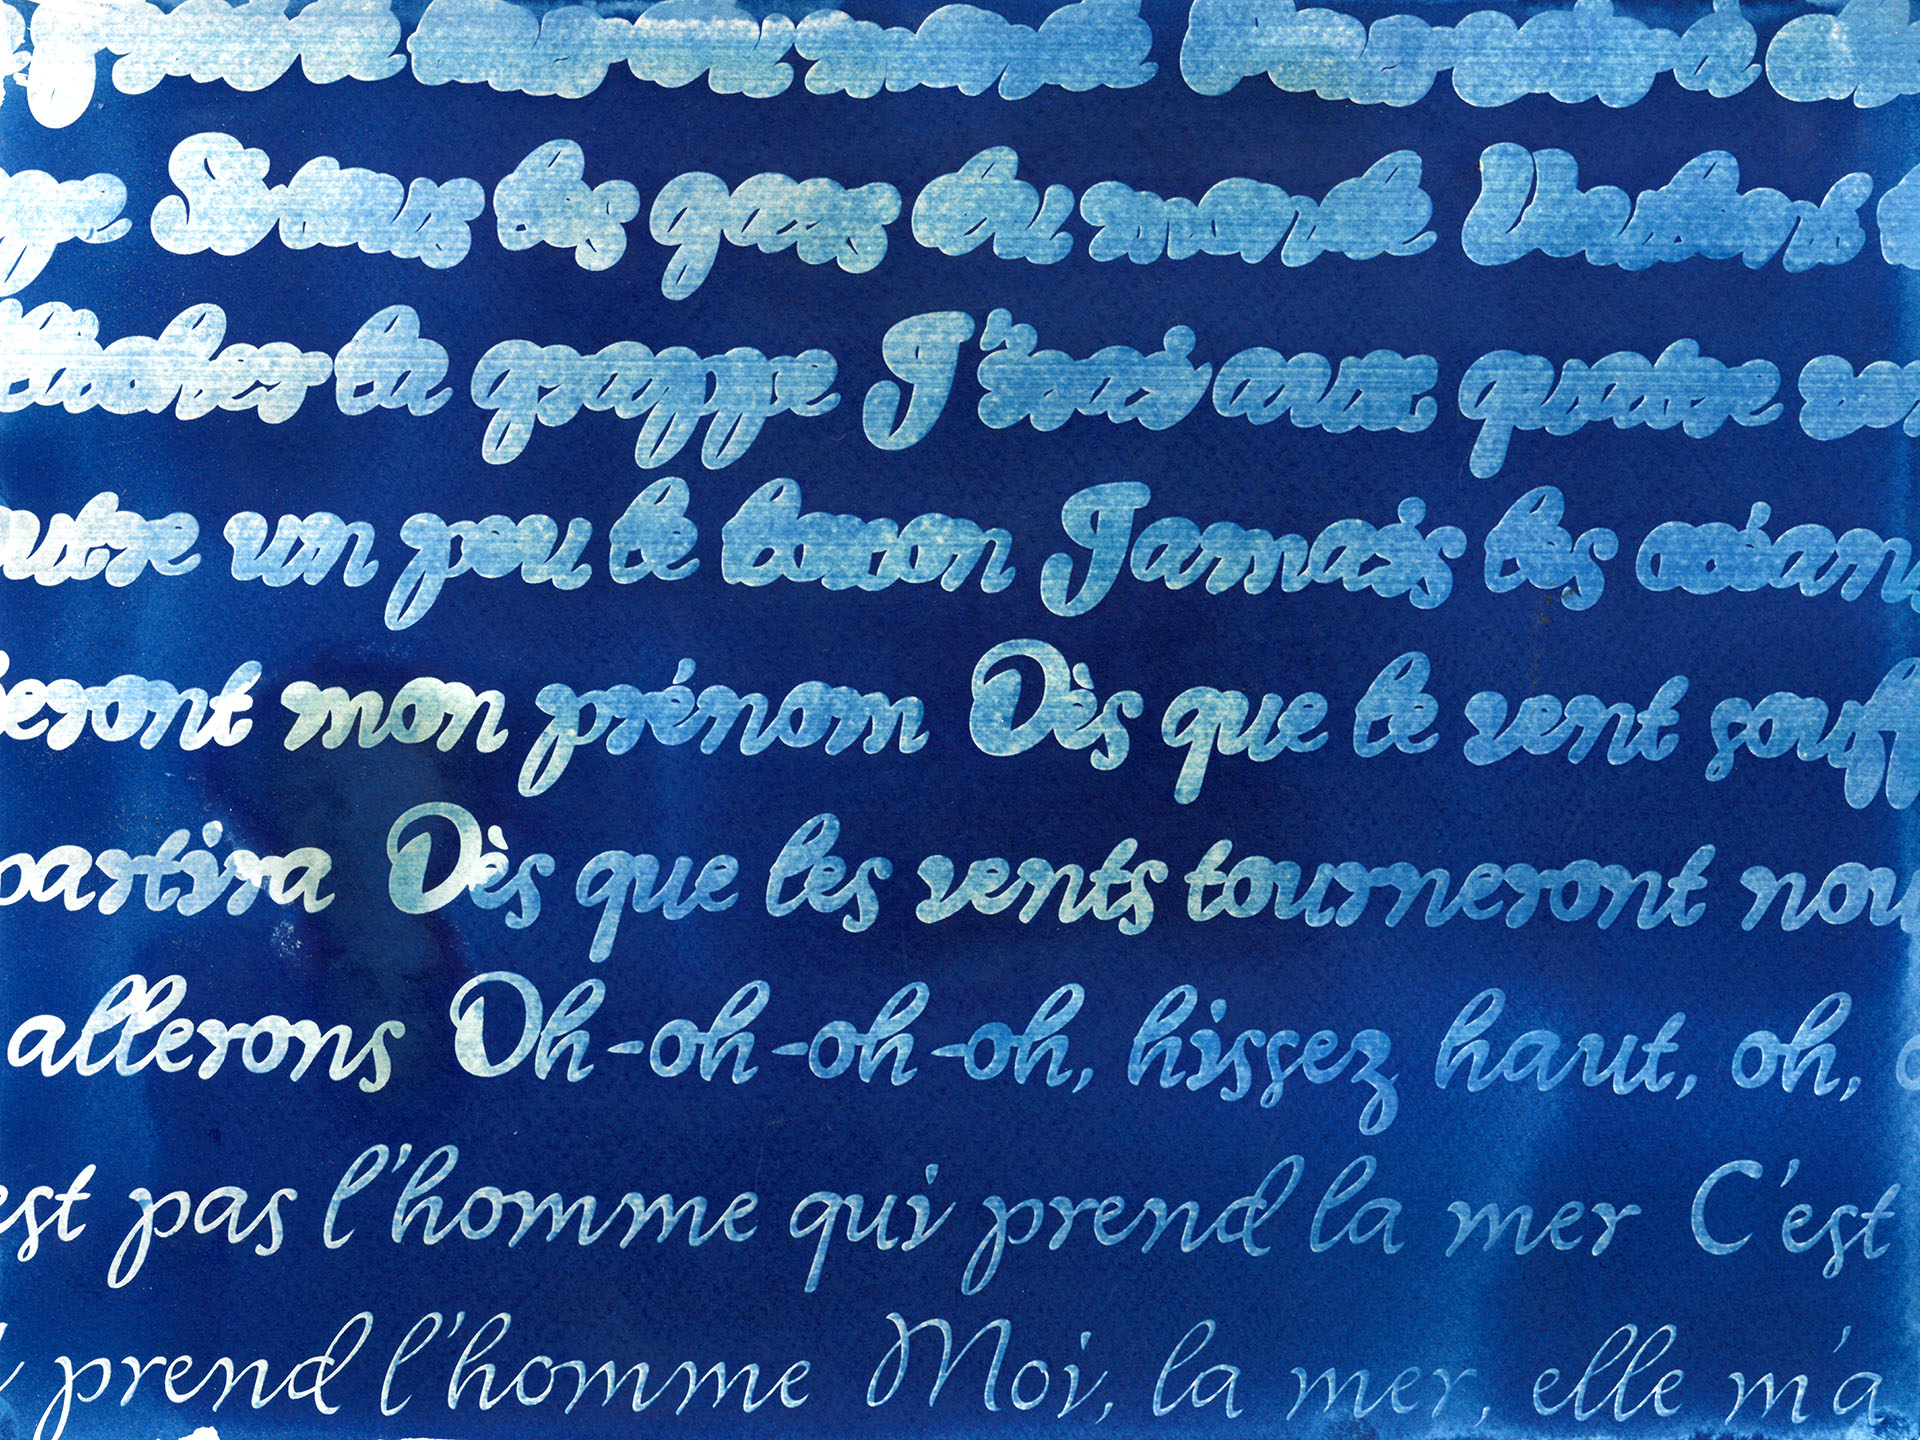 monde à
Si tous les gars du monde Veulent
lâcher la grappe J'irai aux quatre
utre un peu le boxon Jamais les océan
eront mon prénom Dès que le vent souff
partira Dès que les vents tourneront nou
allerons Oh-oh-oh-oh, hissez haut, oh,
est pas l'homme qui prend la mer C'est
prend l'homme Moi, la mer, elle m'a